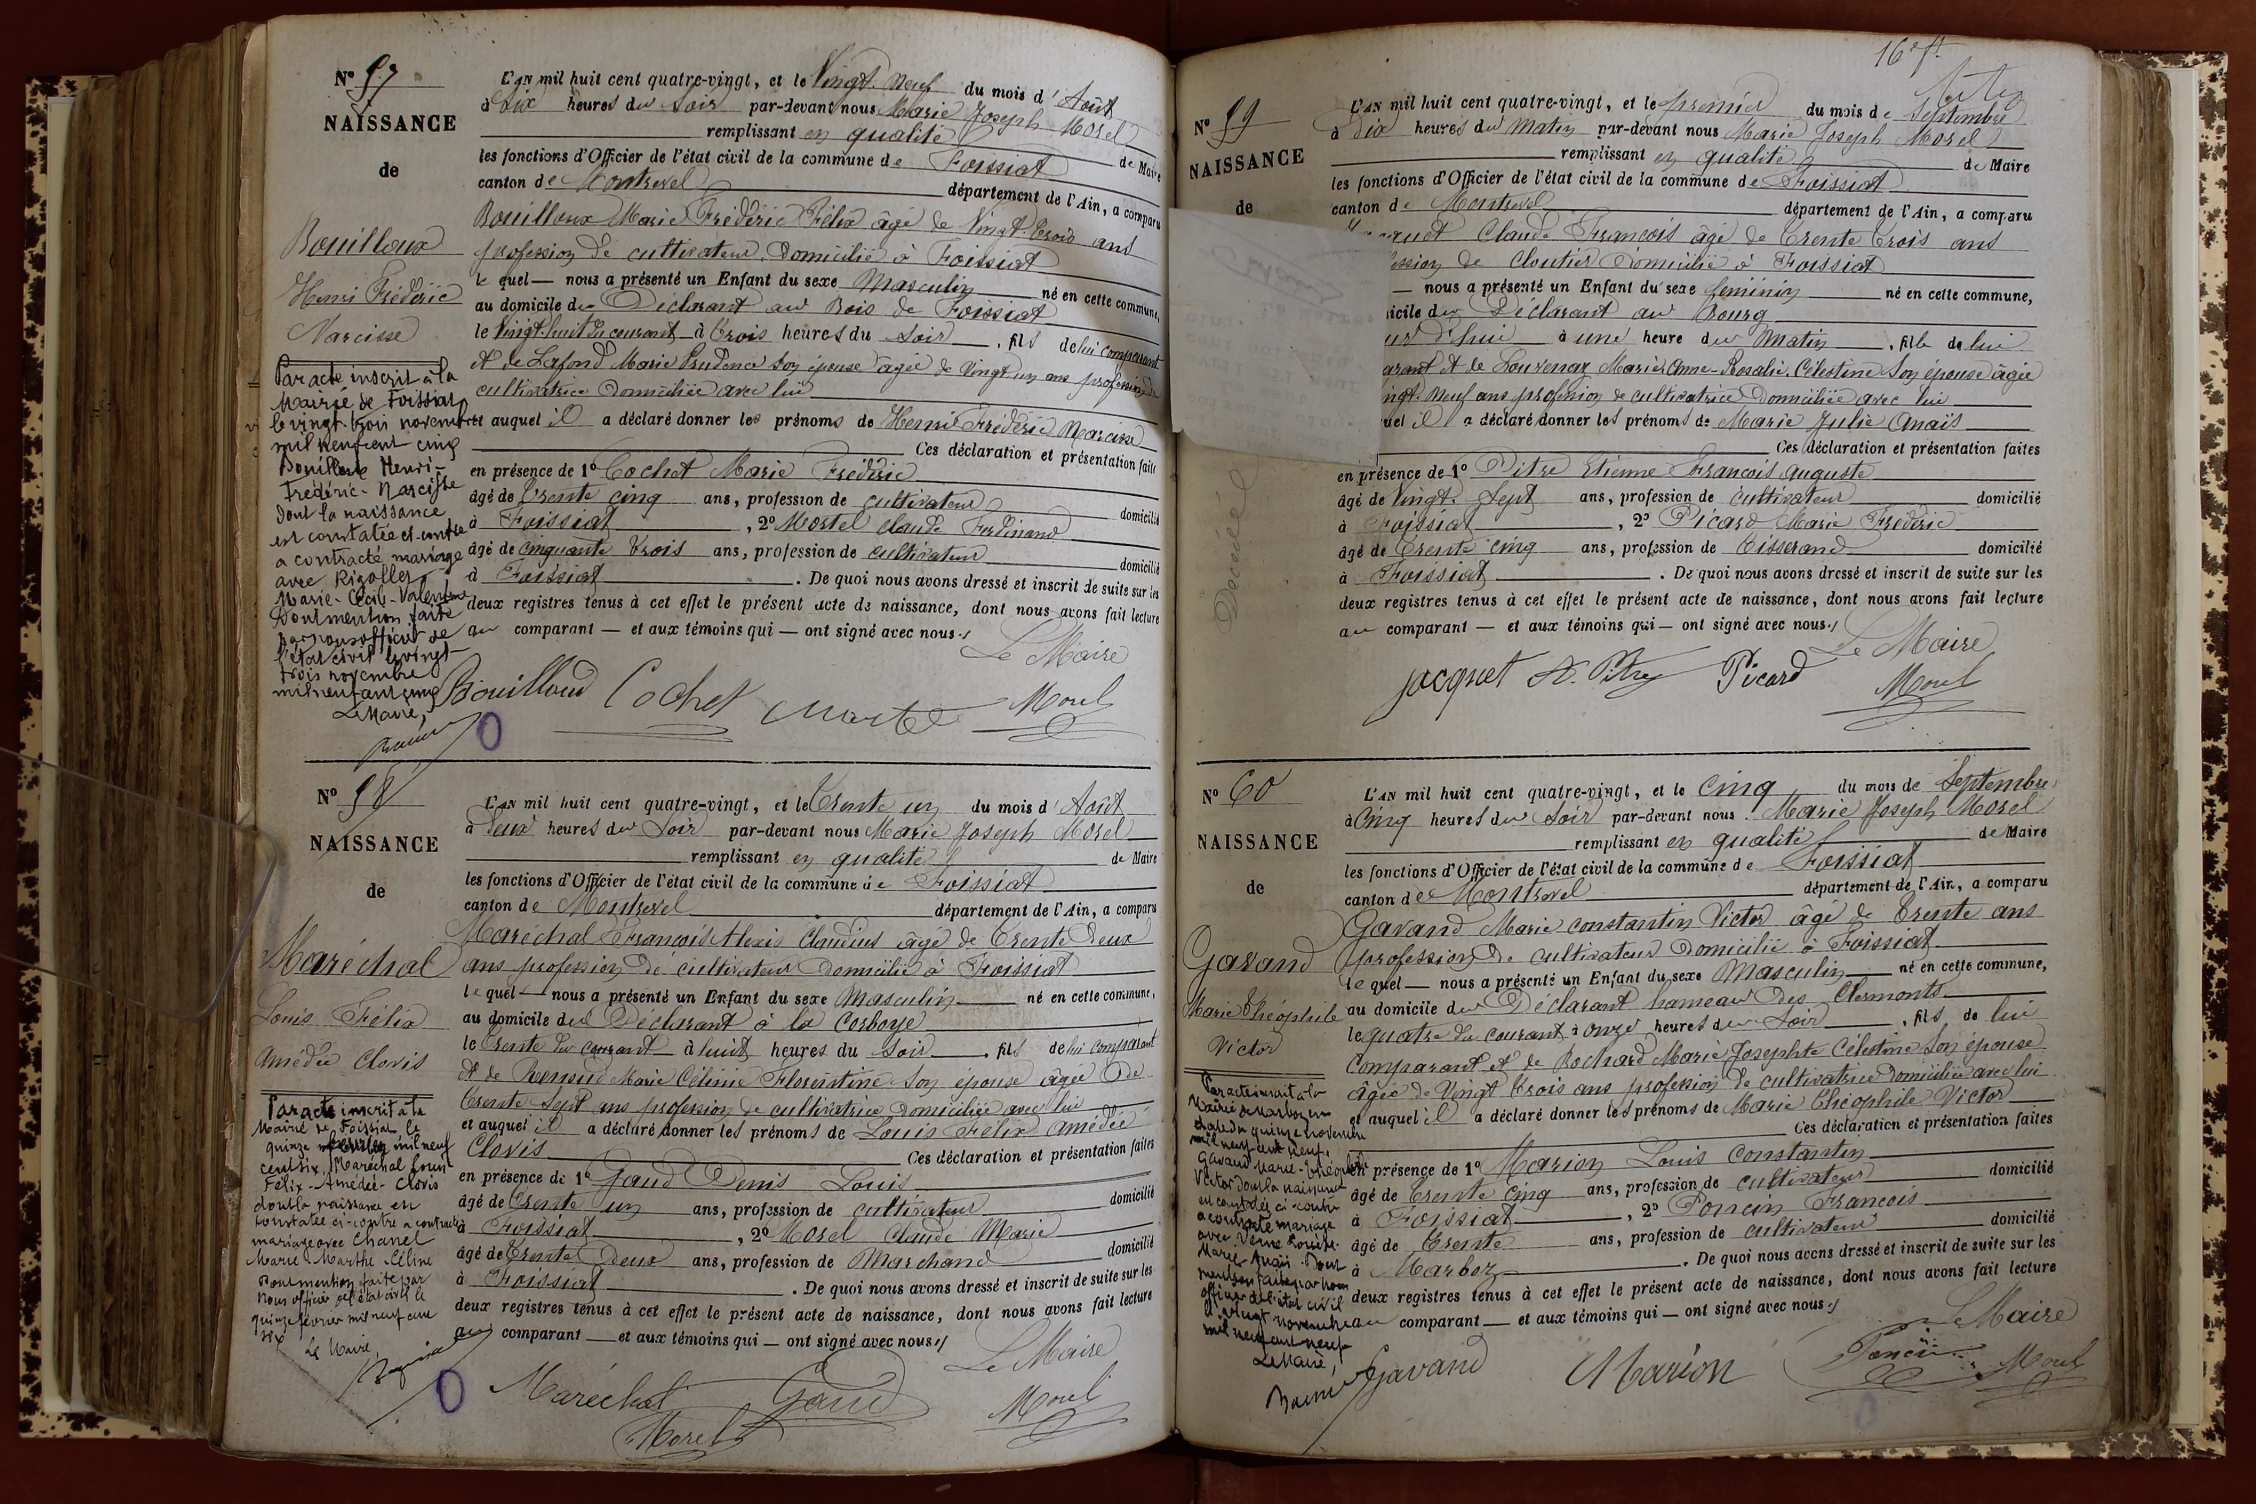 Nº 57
NAISSANCE
de
Bouilloux
Henri Frédéric
Narcisse
Par acte inscrit à la
Mairie de Foissiat
le vingt trois novembre
mil neuf cent cinq
Bouilloux Henri-
Frédéric-Narcisse
dont la naissance
est constatée ci-contre
a contracté mariage
avec Rigollet
Marie-Cécile-Valentine
Dont mention faite
par nous officier de
l'état civil le vingt-
trois novembre
mil neuf cent cinq
Le Maire,
L'AN mil huit cent quatre-vingt, et le Vingt Neuf du mois d'Août
à Six heures du Soir par-devant nous Marie Joseph Morel
remplissant en qualité de Maire
les fonctions d'Officier de l'état civil de la commune de Foissiat
canton de Montrevel département de l'Ain, a comparu
Bouilloux Marie Frédéric Félix âgé de Vingt Trois ans
profession de cultivateur Domicilié à Foissiat
le quel — nous a présenté un Enfant du sexe Masculin né en cette commune,
au domicile du Déclarant au Bois de Foissiat
le Vingt huit du courant à Trois heures du Soir, fils de lui comparant
et de Lafond Marie Prudence Son épouse âgée de Vingt un ans profession de
cultivatrice Domiciliée avec lui
et auquel il a déclaré donner les prénoms de Henri Frédéric Narcisse
Ces déclaration et présentation faites
en présence de 1º Cochet Marie Frédéric
âgé de Trente cinq ans, profession de cultivateur domicilié
à Foissiat, 2º Mortel Claude Ferdinand
âgé de cinquante trois ans, profession de cultivateur domicilié
à Foissiat. De quoi nous avons dressé et inscrit de suite sur les
deux registres tenus à cet effet le présent acte de naissance, dont nous avons fait lecture
au comparant — et aux témoins qui — ont signé avec nous./
Le Maire
Bouilloud Cochet Mortel Morel
Nº 58
NAISSANCE
de
Maréchal
Louis Félix
Amédée Clovis
Par acte inscrit à la
Mairie de Foissiat le
quinze février mil neuf
cent six, Maréchal Louis
Félix-Amédée-Clovis
dont la naissance est
constatée ci-contre a contracté
mariage avec Chanel
Marie Marthe Céline
Dont mention faite par
nous officier de l'état civil le
quinze février mil neuf cent
six
Le Maire,
L'AN mil huit cent quatre-vingt, et le Trente un du mois d'Août
à deux heures du Soir par-devant nous Marie Joseph Morel
remplissant en qualité de Maire
les fonctions d'Officier de l'état civil de la commune de Foissiat
canton de Montrevel département de l'Ain, a comparu
Maréchal François Alexis Claudius âgé de Trente Deux
ans profession de cultivateur Domicilié à Foissiat
le quel — nous a présenté un Enfant du sexe Masculin né en cette commune,
au domicile du Déclarant à la Corboye
le Trente du courant à huit heures du Soir, fils de lui comparant
et de Renoud Marie Célinie Florentine Son épouse âgée De
Trente Sept ans profession de cultivatrice Domiciliée avec lui
et auquel il a déclaré donner les prénoms de Louis Félix Amédée
Clovis Ces déclaration et présentation faites
en présence de 1º Gaud Denis Louis
âgé de Trente un ans, profession de cultivateur domicilié
à Foissiat, 2º Morel Claude Marie
âgé de Trente Deux ans, profession de Marchand domicilié
à Foissiat. De quoi nous avons dressé et inscrit de suite sur les
deux registres tenus à cet effet le présent acte de naissance, dont nous avons fait lecture
au comparant — et aux témoins qui — ont signé avec nous./
Le Maire
Maréchal Gaud Morel
Morel
16e ft
Nº 59
NAISSANCE
de
Décédée
L'AN mil huit cent quatre-vingt, et le premier du mois de Septembre
à Dix heures du Matin par-devant nous Marie Joseph Morel
remplissant en qualité de Maire
les fonctions d'Officier de l'état civil de la commune de Foissiat
canton de Montrevel département de l'Ain, a comparu
quet Claude François âgé de Trente Trois ans
ession de Cloutier Domicilié à Foissiat
— nous a présenté un Enfant du sexe féminin né en cette commune,
icile du Déclarant au Bourg
ur d'hui à une heure du Matin, fille de lui
arant et de Louvenax Marie Anne-Rosalie Célestine Son épouse âgée
ingt Neuf ans profession de cultivatrice Domiciliée avec lui
uel il a déclaré donner les prénoms de Marie Julie Anaïs
Ces déclaration et présentation faites
en présence de 1º Pitre Etienne François Auguste
âgé de Vingt Sept ans, profession de cultivateur domicilié
à Foissiat, 2º Picard Marie Frédéric
âgé de Trente cinq ans, profession de Tisserand domicilié
à Foissiat. De quoi nous avons dressé et inscrit de suite sur les
deux registres tenus à cet effet le présent acte de naissance, dont nous avons fait lecture
au comparant — et aux témoins qui — ont signé avec nous./
Le Maire
Jacquet Pitre Picard Morel
Nº 60
NAISSANCE
de
Gavand
Marie Théophile
Victor
Par acte inscrit à la
Mairie de Marboz en
date du quinze novembre
mil neuf cent neuf,
Gavand Marie-Théophile
Victor dont la naissance
est constatée ci-contre
a contracté mariage
avec Verne Louise-
Marie Anaïs. Dont
mention faite par nous
officier de l'état civil
le vingt novembre
mil neuf cent neuf
Le Maire,
L'AN mil huit cent quatre-vingt, et le cinq du mois de Septembre
à Cinq heures du Soir par-devant nous Marie Joseph Morel
remplissant en qualité de Maire
les fonctions d'Officier de l'état civil de la commune de Foissiat
canton de Montrevel département de l'Ain, a comparu
Gavand Marie Constantin Victor âgé de Trente ans
profession de cultivateur Domicilié à Foissiat
le quel — nous a présenté un Enfant du sexe Masculin né en cette commune,
au domicile du Déclarant hameau Des Clermonts
le quatre du courant à onze heures du Soir, fils de lui
Comparant et de Rochard Marie Josephte Célestine Son épouse
âgée de Vingt Trois ans profession de cultivatrice Domiciliée avec lui
et auquel il a déclaré donner les prénoms de Marie Théophile Victor
Ces déclaration et présentation faites
en présence de 1º Marion Louis Constantin
âgé de Trente Cinq ans, profession de cultivateur domicilié
à Foissiat, 2º Poncin François
âgé de Trente ans, profession de cultivateur domicilié
à Marboz. De quoi nous avons dressé et inscrit de suite sur les
deux registres tenus à cet effet le présent acte de naissance, dont nous avons fait lecture
au comparant — et aux témoins qui — ont signé avec nous./
Le Maire
Gavand Marion Poncin Morel